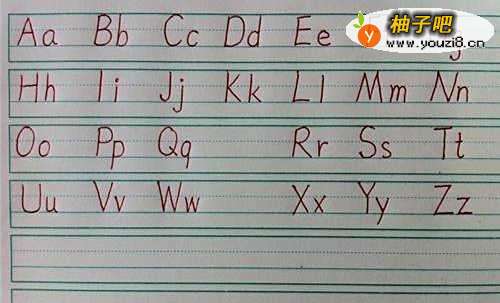 柚子吧
www.youzi8.cn
Aa Bb Cc Dd Ee
Hh Ii Jj Kk Ll Mm Nn
Oo Pp Qq Rr Ss Tt
Uu Vv Ww Xx Yy Zz